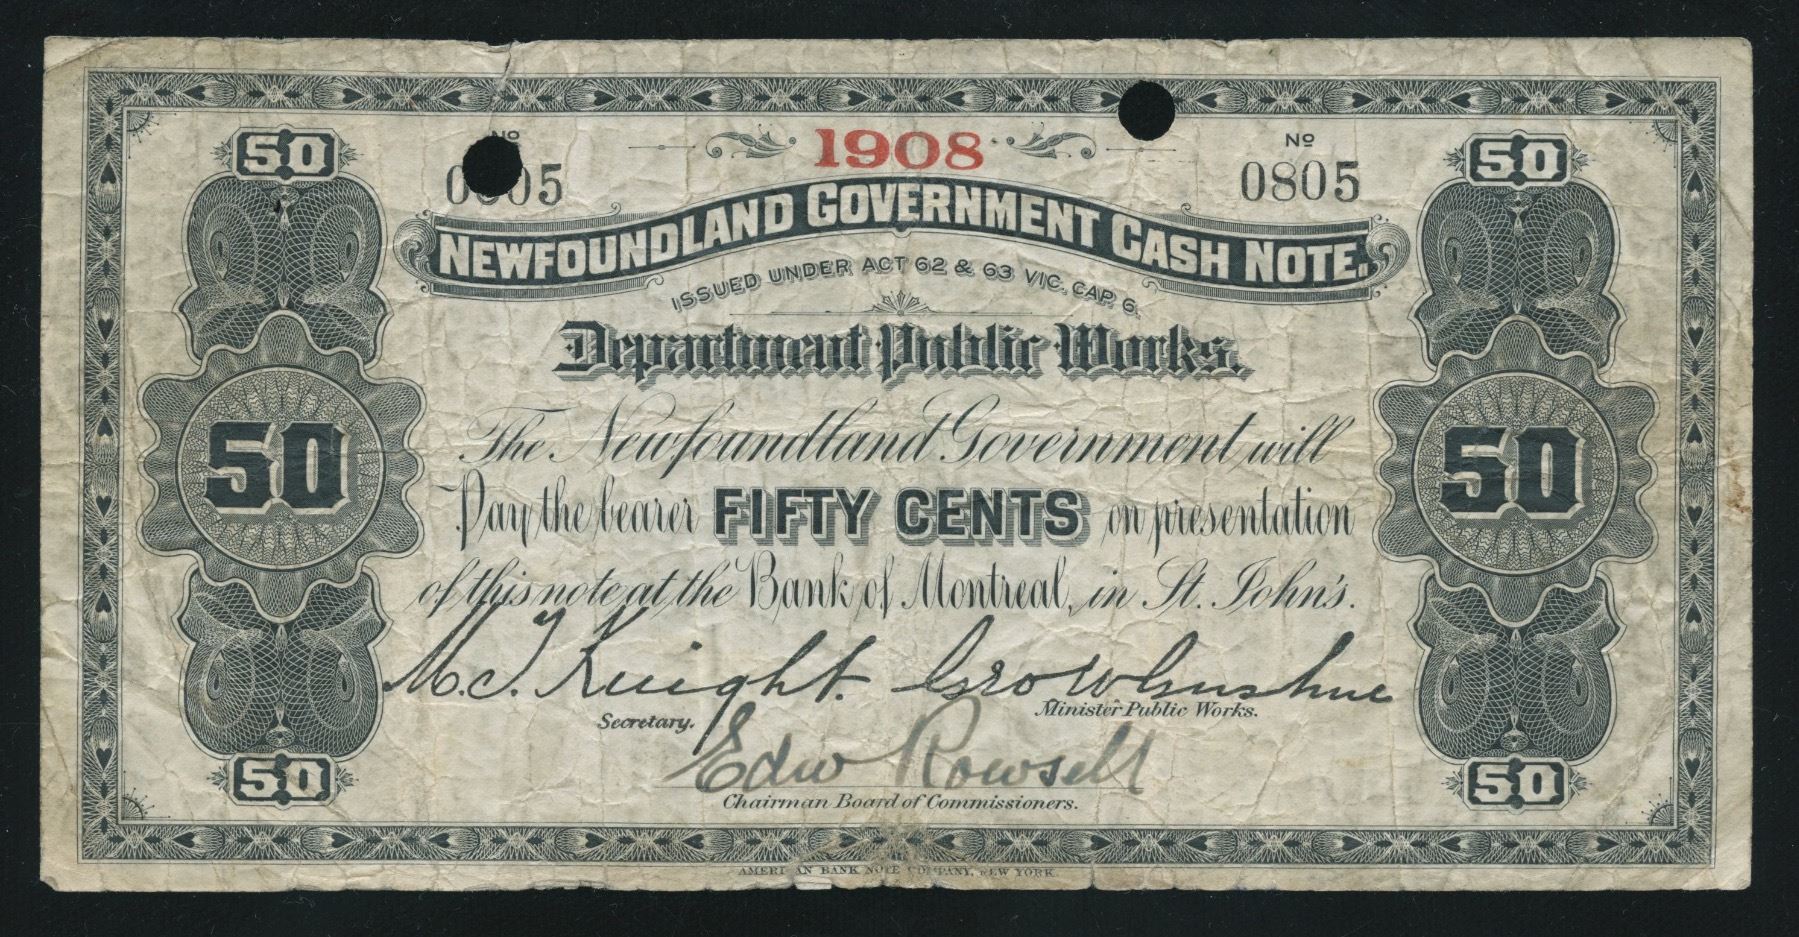 50 Nº 1908 Nº 50
0805
NEWFOUNDLAND GOVERNMENT CASH NOTE.
ISSUED UNDER ACT 62 & 63 VIC. CAP. 6.
Department Public Works.
The Newfoundland Government will
50 Pay the bearer FIFTY CENTS on presentation 50
of this note at the Bank of Montreal, in St. John's.
Knight. Geo W Gushue
Secretary. Minister Public Works.
Edw Rowsell
50 Chairman Board of Commissioners. 50
AMERICAN BANK NOTE COMPANY, NEW YORK